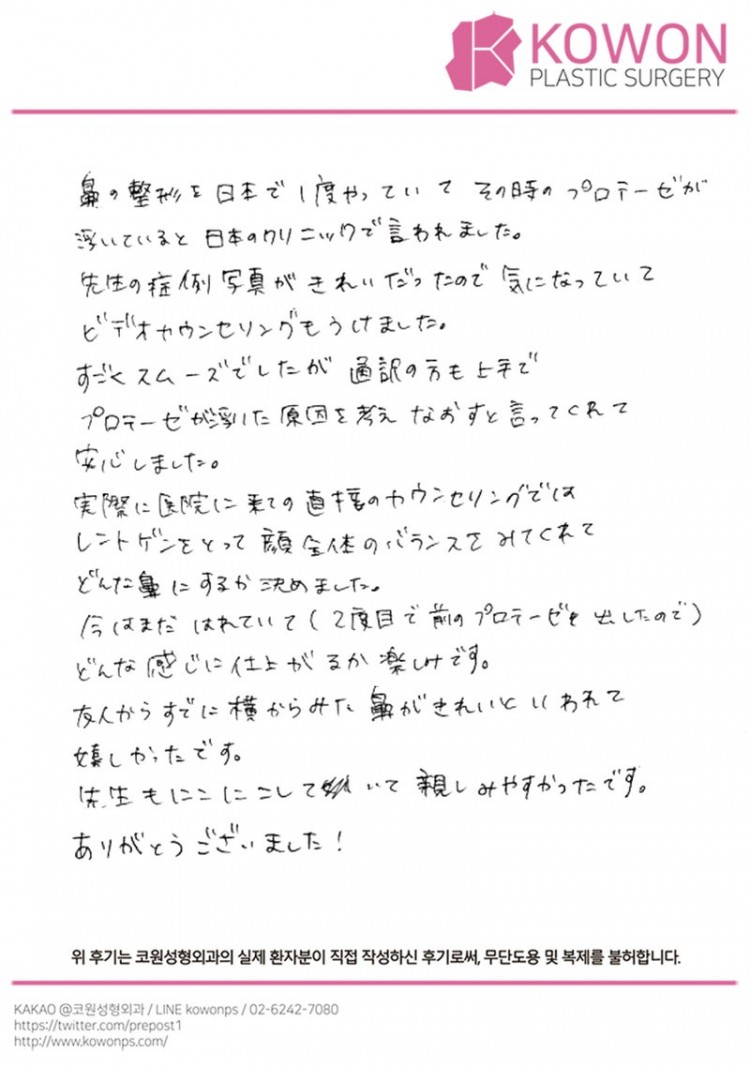 KOWON
PLASTIC SURGERY
鼻の整形を日本で1度やっていて その時のプロテーゼが
浮いていると日本のクリニックで言われました。
先生の症例写真がきれいだったので気になっていて
ビデオカウンセリングもうけました。
すごくスムーズでしたが 通訳の方も上手で
プロテーゼが浮いた原因を考え なおすと言ってくれて
安心しました。
実際に医院に来ての直接のカウンセリングでは
レントゲンをとって 顔全体のバランスをみてくれて
どんな鼻にするか決めました。
今はまだ はれていて(2度目で前のプロテーゼを出したので)
どんな感じに仕上がるか楽しみです。
友人からすでに横からみた鼻がきれいといわれて
嬉しかったです。
先生もにこにこして いて 親しみやすかったです。
ありがとうございました!
위 후기는 코원성형외과의 실제 환자분이 직접 작성하신 후기로써, 무단도용 및 복제를 불허합니다.
KAKAO @코원성형외과 / LINE kowonps / 02-6242-7080
https://twitter.com/prepost1
http://www.kowonps.com/